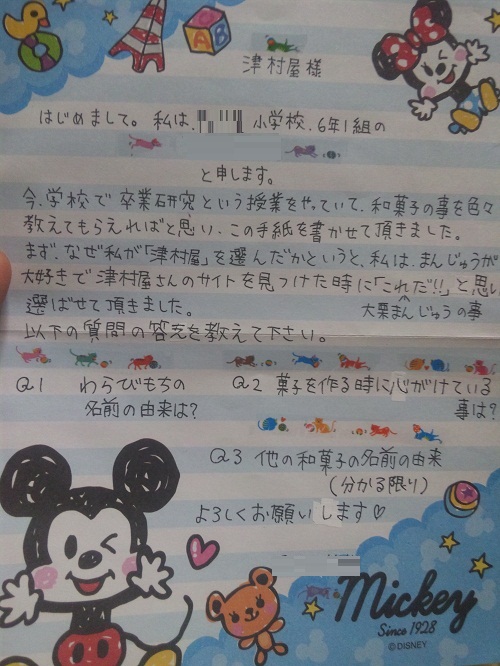 津村屋様
はじめまして。私は、小学校、6年1組の
と申します。
今、学校で卒業研究という授業をやっていて、和菓子の事を色々
教えてもらえればと思い、この手紙を書かせて頂きました。
まず、なぜ私が「津村屋」を選んだかというと、私は、まんじゅうが
大好きで津村屋さんのサイトを見つけた時に「これだ!!」と思い
選ばせて頂きました。 大栗まんじゅうの事
以下の質問の答えを教えて下さい。
Q1 わらびもちの 名前の由来は?
Q2 菓子を作る時に心がけている 事は?
Q3 他の和菓子の名前の由来
(分かる限り)
よろしくお願いします♡
Mickey
Since 1928
© DISNEY
A
B